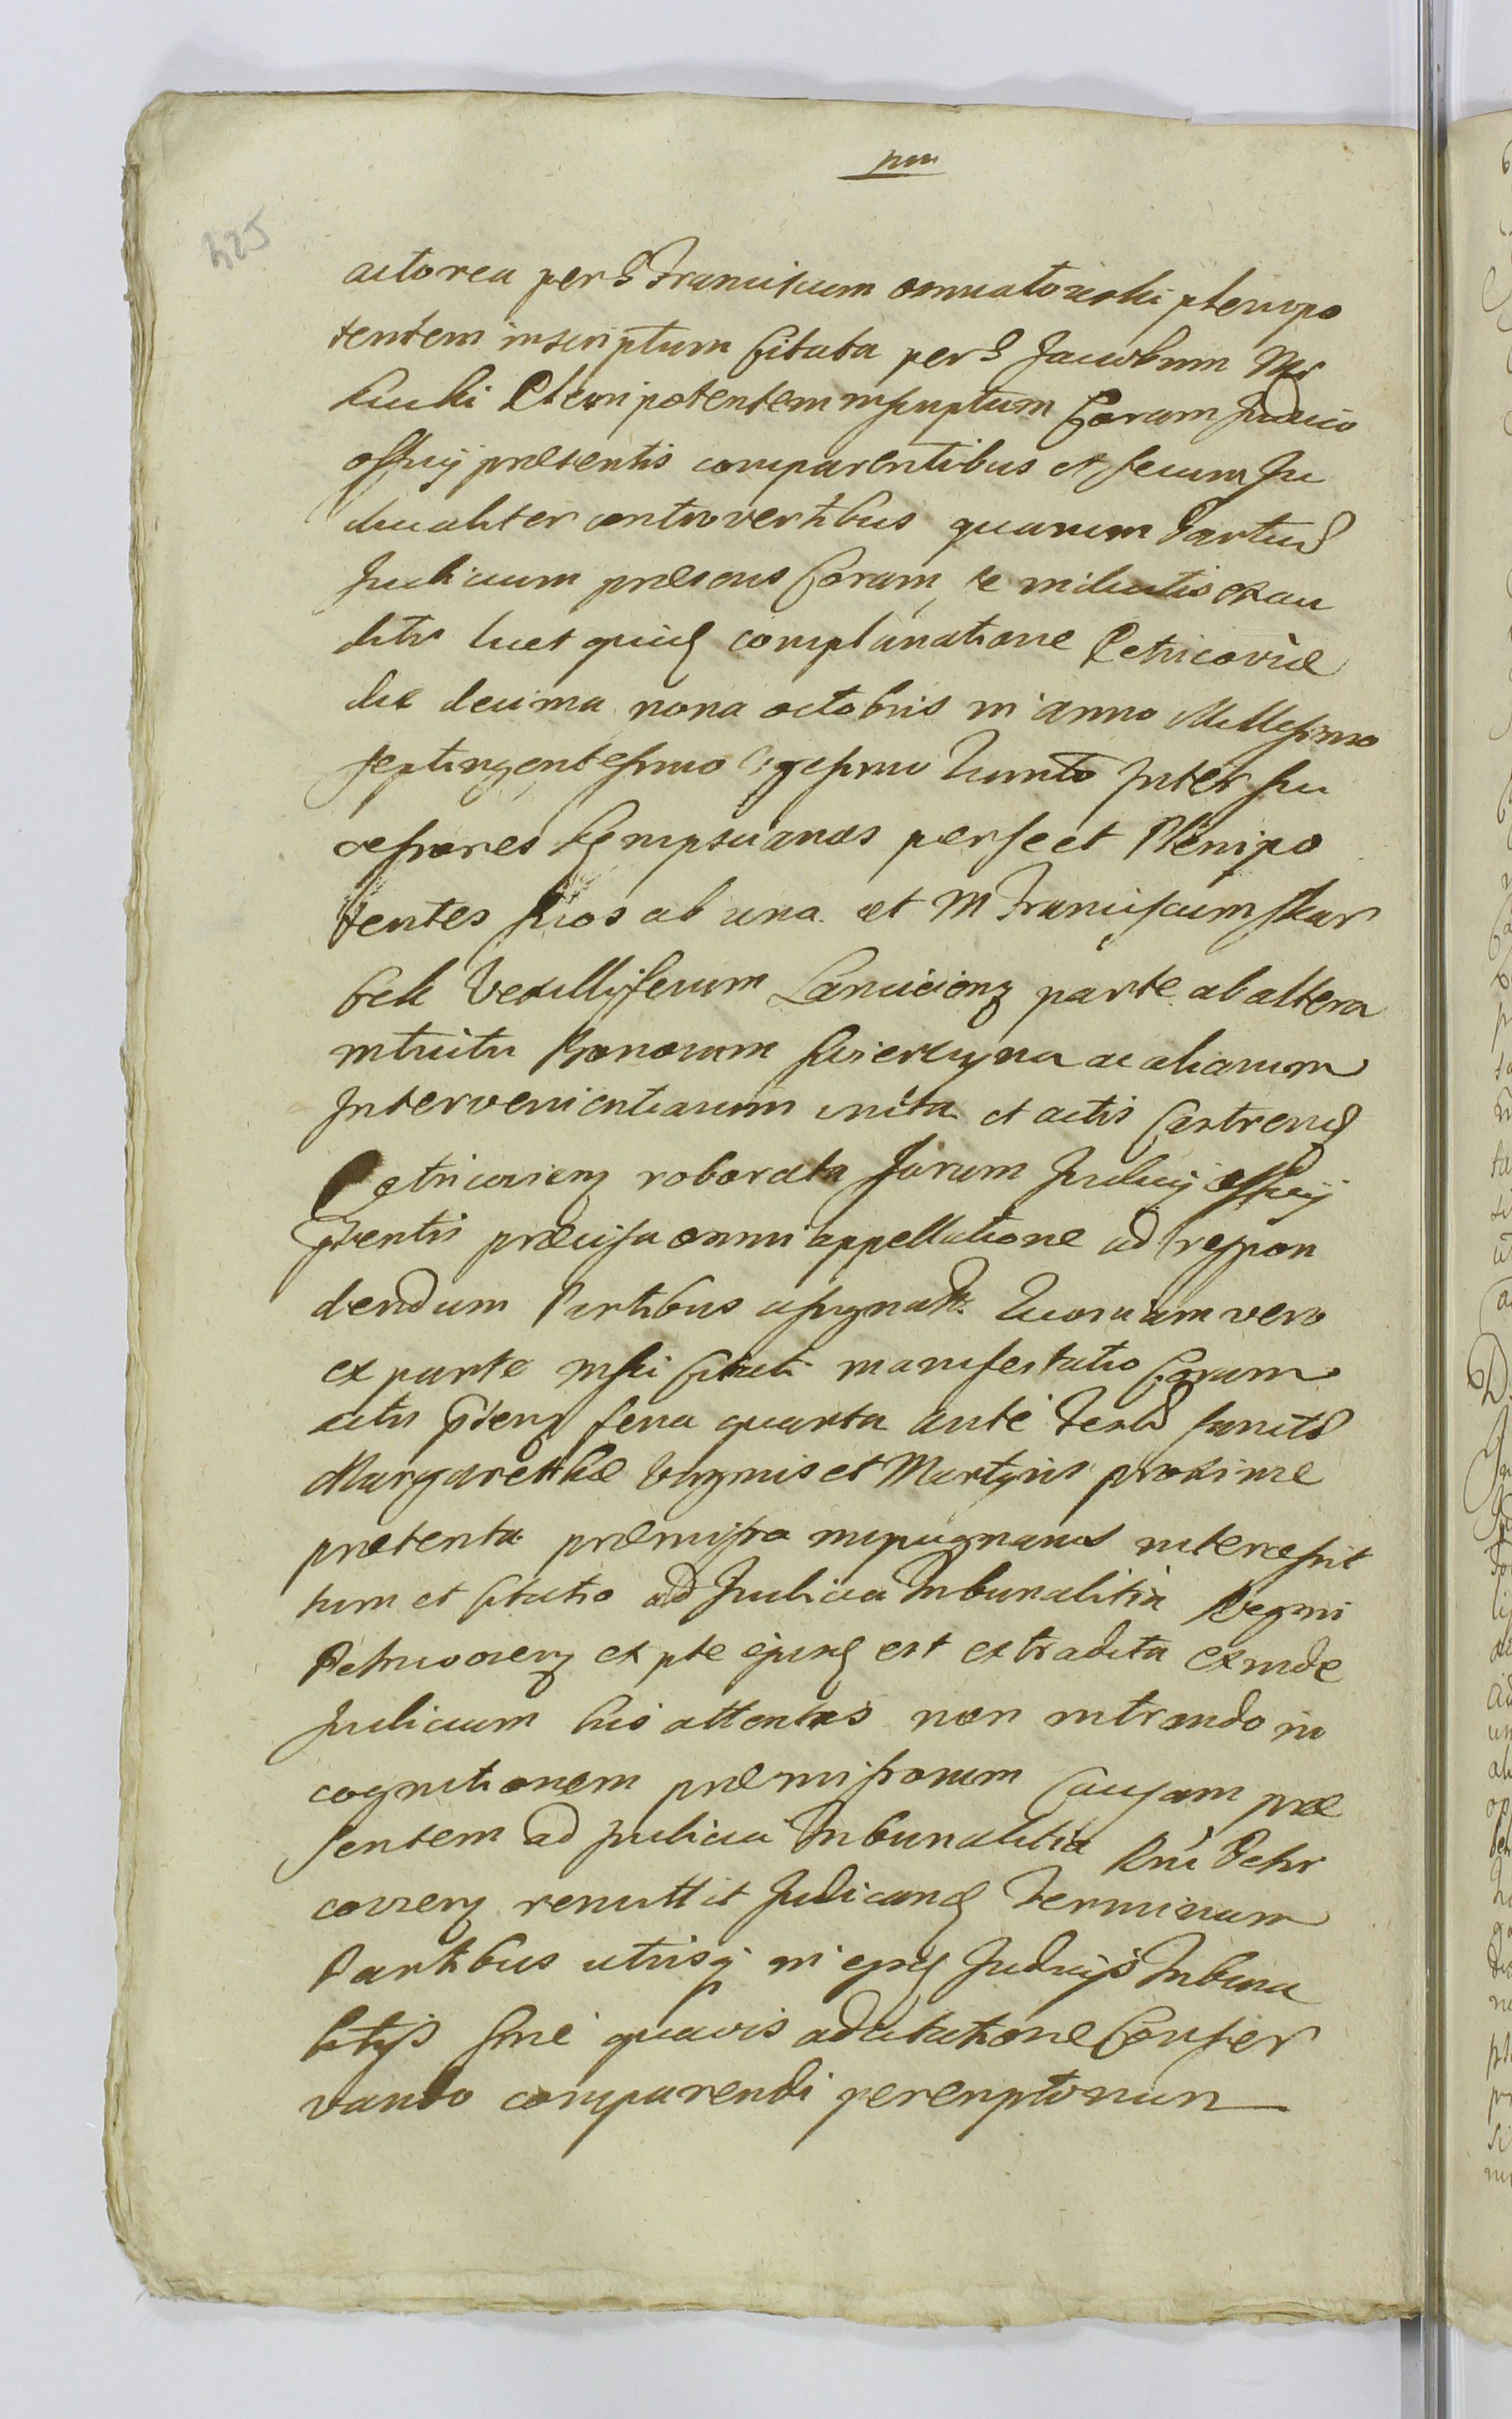 325
actorea per G Franciscum plenipo
tentem inscriptum Citata per G Jacobum
Plenipotentem inscriptum Coram Judicio
officij præsentis comparentibus et secum Ju
dicialiter controvertibus quarum Partium
Judicium præsens Coram se exau
ditis licet quidem complanatione Petricoviæ
die decima nona octobris in anno Millesimo
septingentesimo Quinto Inter Su
cessores per se et Plenipo
tentes suos ab una et M Franciscum Skar
bek Vexilliferum Lanciciens parte ab altera
intuitu Bonorum ac aliarum
Intervenientiarum inita et actis Castrens
Petricoviens roborata forum Judicij officij
præsentis præcisa omni appellatione ad respon
dendum Partibus assignatt Quoniam vero
ex parte Citati manifestatio Coram
actis pnt feria quarta ante Festum Sanctæ
Margarethæ Virginis et Martyris proxime
præterita præmissa impugnans intercessit
tum et Citatio ad Judicia Tribunalitia Regni
Petricoviens ex pte ejusd est extradita Exinde
Judicium his attentis non intrando in
cognitionem præmissorum Causam præ
sentem ad Judicia Tribunalitia Rni Petri
coviens remittit Judicand Terminum
Partibus utrisq in ejsd Judicijs Tribuna
litijs sine quavis adcitatione Conser
vando comparendi peremptorium